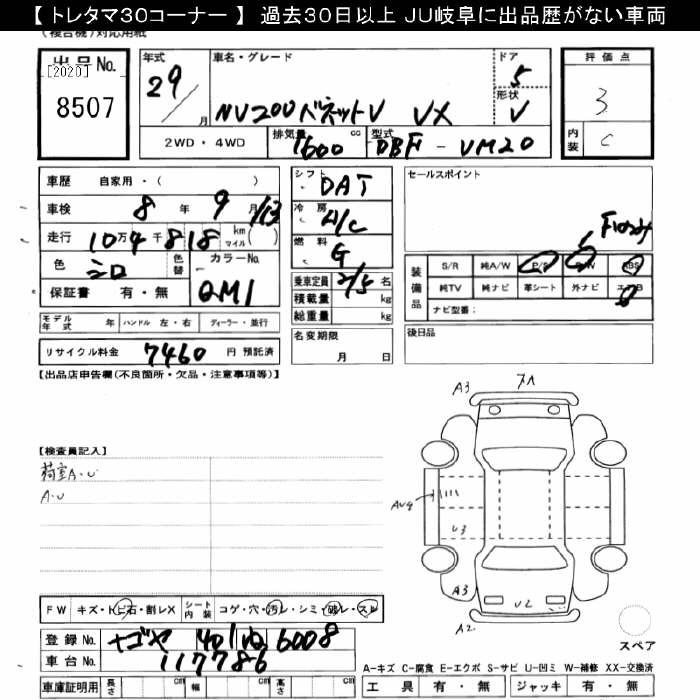 【 トレタマ30コーナー 】 過去30日以上 JU岐阜に出品歴がない車両
(複合機)対応用紙
出品No.
[2020]
8507
年式
29
月
車名・グレード
NV200バネットV VX
ドア
5
形状
V
2WD ・ 4WD
排気量
1600
cc
型式
DBF - VM20
評価点
3
内装
C
車歴 自家用・( )
車検 8 年 9 月 /13
走行 10万4千818 km マイル( )
色 シロ 色替
カラーNo.
QM1
保証書 有・無
シフト DAT
冷房 A/C
燃料 G
乗車定員 2/5 名
積載量 kg
総重量 kg
名変期限
月 日
セールスポイント
装備品
S/R 純A/W P/S P/W ABS
純TV 純ナビ 革シート 外ナビ エアB
ナビ型番：
後日品
モデル年式 年 ハンドル 左・右 ディーラー・並行
リサイクル料金 7460 円 預託済
【出品店申告欄(不良箇所・欠品・注意事項等)】
【検査員記入】
荷室A・U
A・U
A3
AU4
U3
A3
UL
A2
スペア
FW キズ・トビ石・割レX
シート内装 コゲ・穴・汚レ・シミ・破レ・スレ
登録No. ナゴヤ 401 6008
車台No. 117786
車庫証明用 長さ cm 幅 cm 高さ cm
A-キズ C-腐食 E-エクボ S-サビ U-凹ミ W-補修 XX-交換済
工具 有・無 ジャッキ 有・無